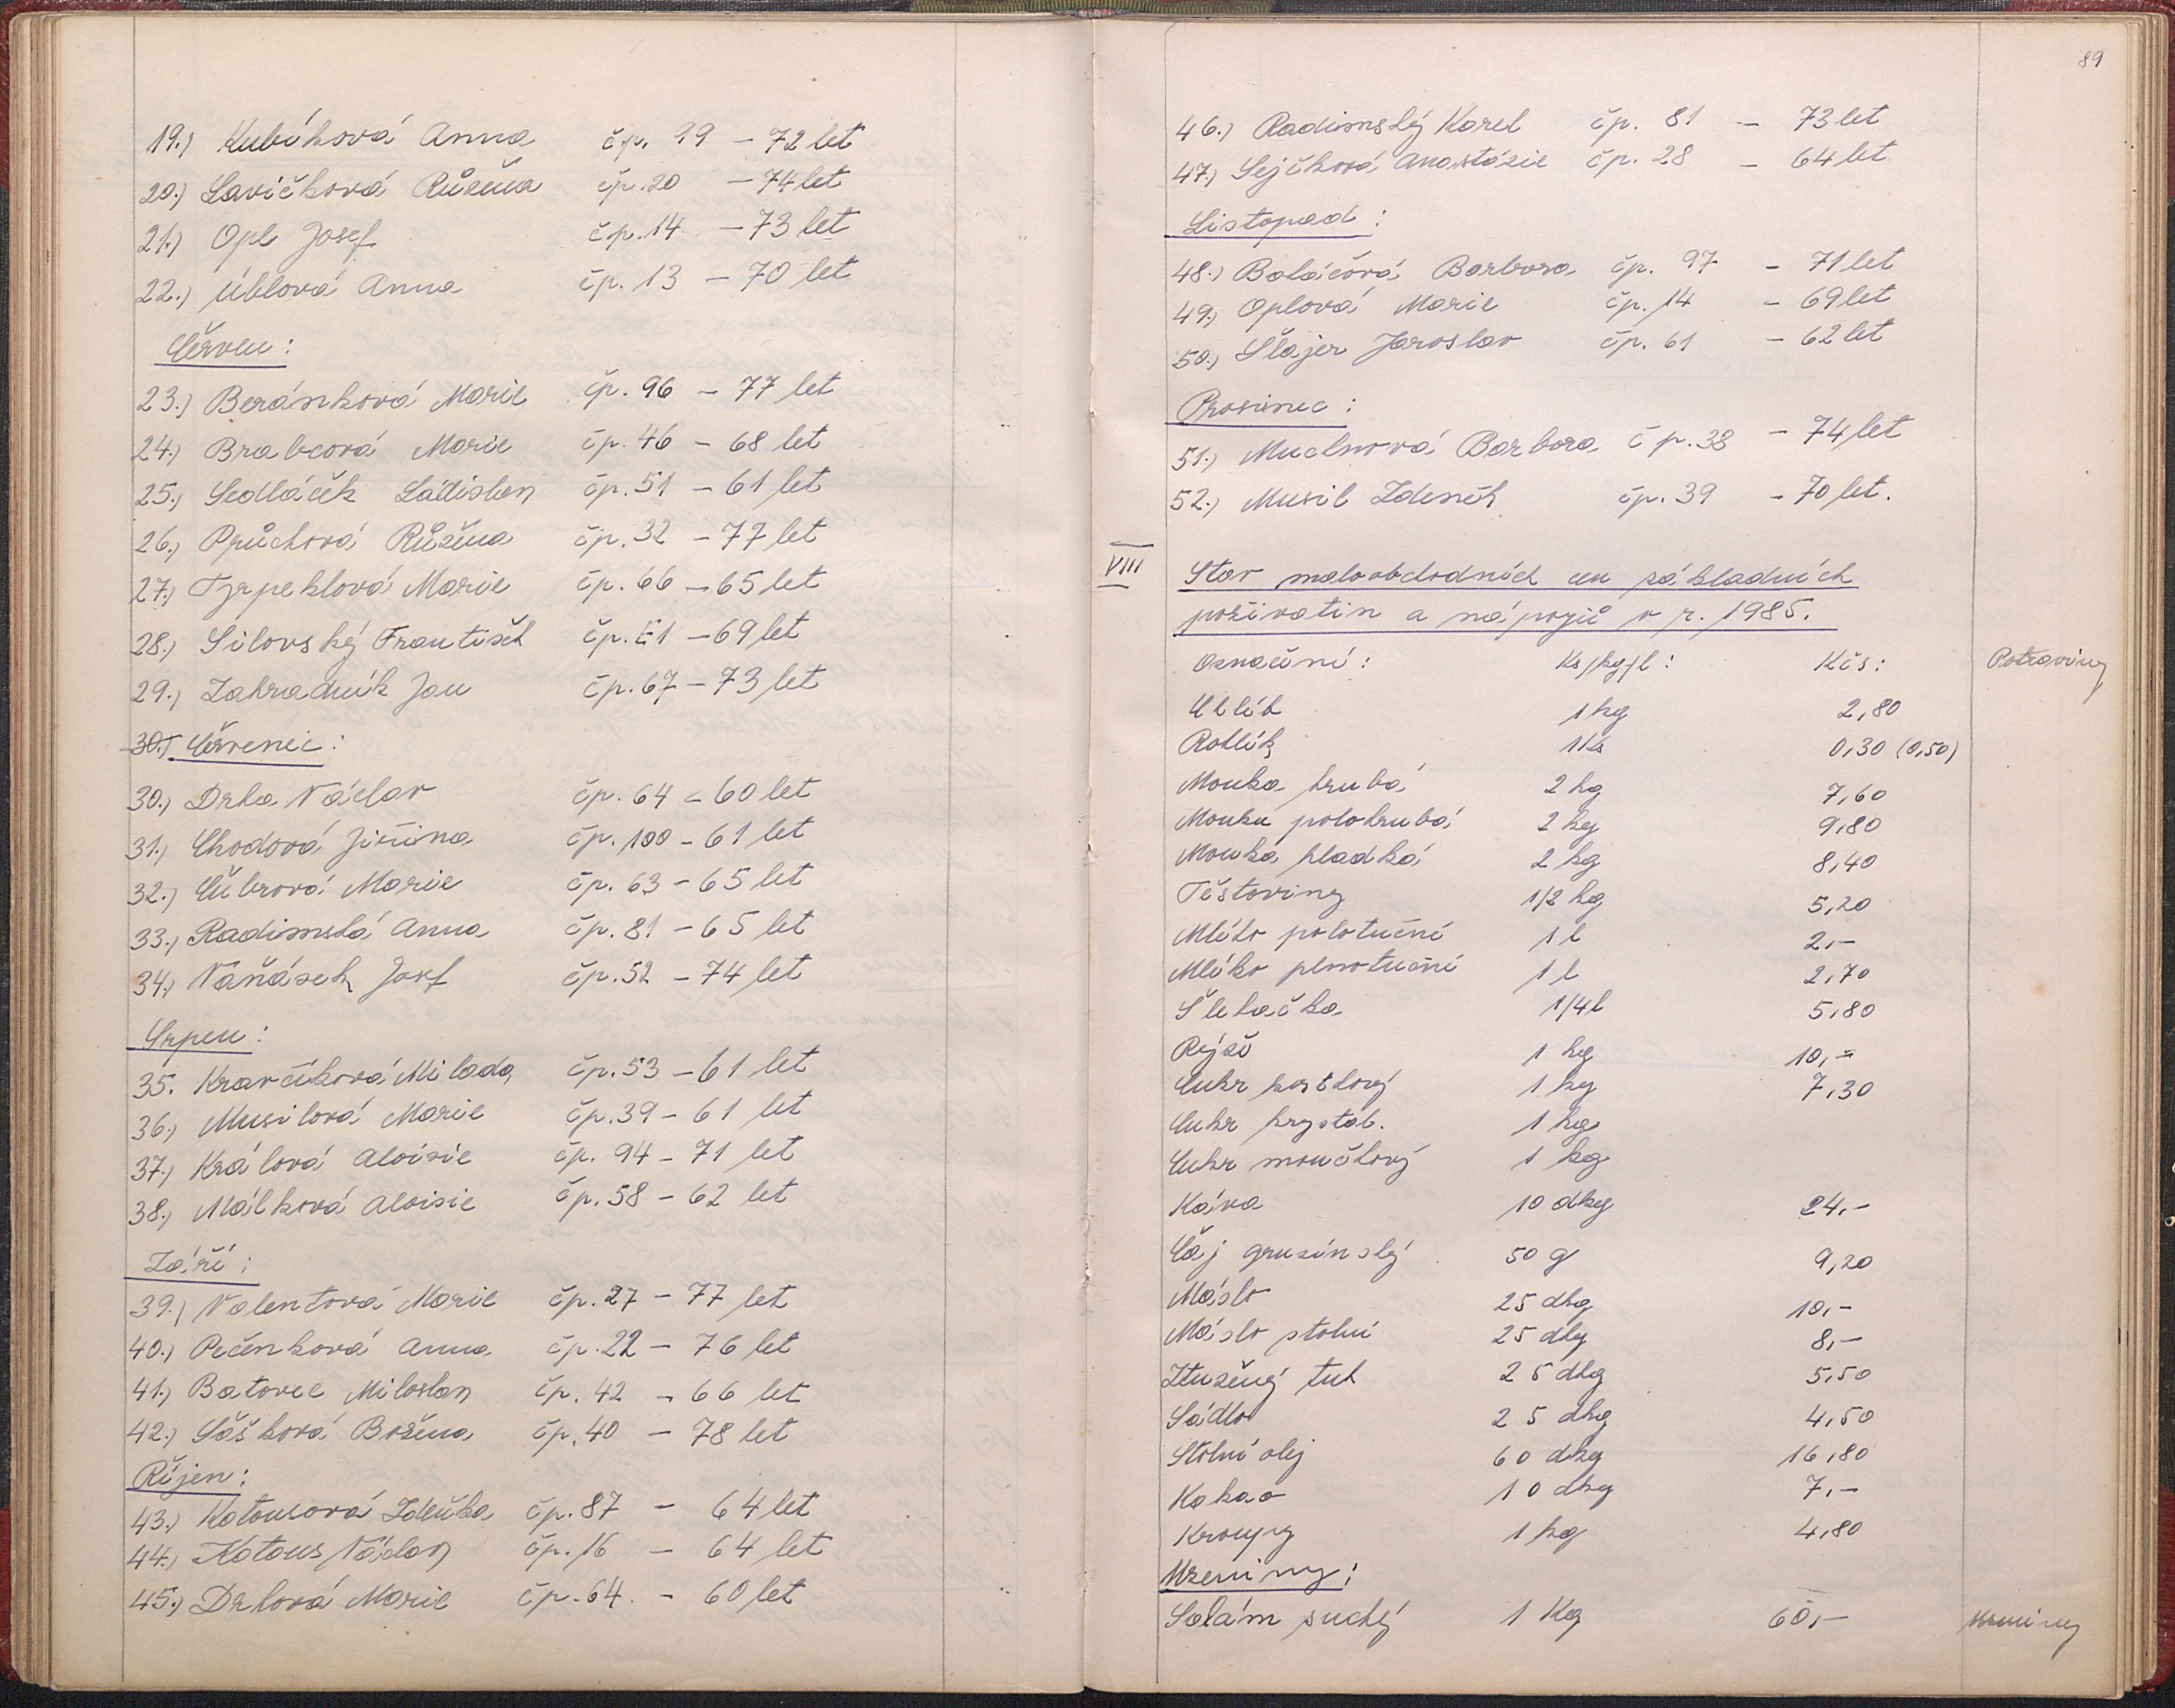 19.) Kubíková Anna čp. 99 – 72 let
20.) Lavičková Růžena čp. 20 – 74 let
21.) Opl Josef čp. 14 – 73 let
22.) Úblová Anna čp. 13 – 70 let
Červen:
23.) Beránková Marie čp. 96 – 77 let
24.) Brabcová Marie čp. 46 – 68 let
25.) Sedláček Ladislav čp. 51 – 61 let
26.) Průchová Růžena čp. 32 – 77 let
27.) Tyrpeklová Marie čp. 66 – 65 let
28.) Silovský František čp. E1 – 69 let
29.) Zahradník Jan čp. 67 – 73 let
30.) Červenec:
30.) Drha Václav čp. 64 – 60 let
31.) Chodová Jiřina čp. 100 – 61 let
32.) Čubrová Marie čp. 63 – 65 let
33.) Radimská Anna čp. 81 – 65 let
34.) Vaňásek Josef čp. 52 – 74 let
Srpen:
35. Kravčíková Milada čp. 53 – 61 let
36.) Musilová Marie čp. 39 – 61 let
37.) Králová Aloisie čp. 94 – 71 let
38.) Málková Aloisie čp. 58 – 62 let
Září:
39.) Valentová Marie čp. 27 – 77 let
40.) Pečenková Anna čp. 22 – 76 let
41.) Batovec Miloslav čp. 42 – 66 let
42.) Sášková Božena čp. 40 – 78 let
Říjen:
43.) Katousová Zdeňka čp. 87 – 64 let
44.) Katous Václav čp. 16 – 64 let
45.) Drhová Marie čp. 64. – 60 let
89
46.) Radimský Karel čp. 81 – 73 let
47.) Sejčková Anastázie čp. 28 – 64 let
Listopad:
48.) Baláčová Barbora čp. 97 – 71 let
49.) Oplová Marie čp. 14 – 69 let
50.) Šlajer Jaroslav čp. 61 – 62 let
Prosinec:
51.) Muclnová Barbora čp. 38 – 74 let
52.) Musil Zdeněk čp. 39 – 70 let.
VIII
Stav maloobchodních cen základních
poživatin a nápojů v r. 1985.
Označení: Ks/kg/l: Kčs: Potraviny
Chléb 1 kg 2,80
Rohlík 1 Ks 0,30 (0,50)
Mouka hrubá 2 kg 7,60
Mouka polohrubá 2 kg 9,80
Mouka hladká 2 kg 8,40
Těstoviny 1/2 kg 5,20
Mléko polotučné 1 l 2,–
Mléko plnotučné 1 l 2,70
Šlehačka 1/4 l 5,80
Rýže 1 kg 10,–
Cukr kostkový 1 kg 7,30
Cukr krystal. 1 kg
Cukr moučkový 1 kg
Káva 10 dkg 24,–
Čaj gruzínský 50 g 9,20
Máslo 25 dkg 10,–
Máslo stolní 25 dkg 8,–
Ztužený tuk 25 dkg 5,50
Sádlo 25 dkg 4,50
Stolní olej 60 dkg 16,80
Kakao 10 dkg 7,–
Kroupy 1 kg 4,80
Uzeniny:
Salám suchý 1 Kg 60,– Uzeniny